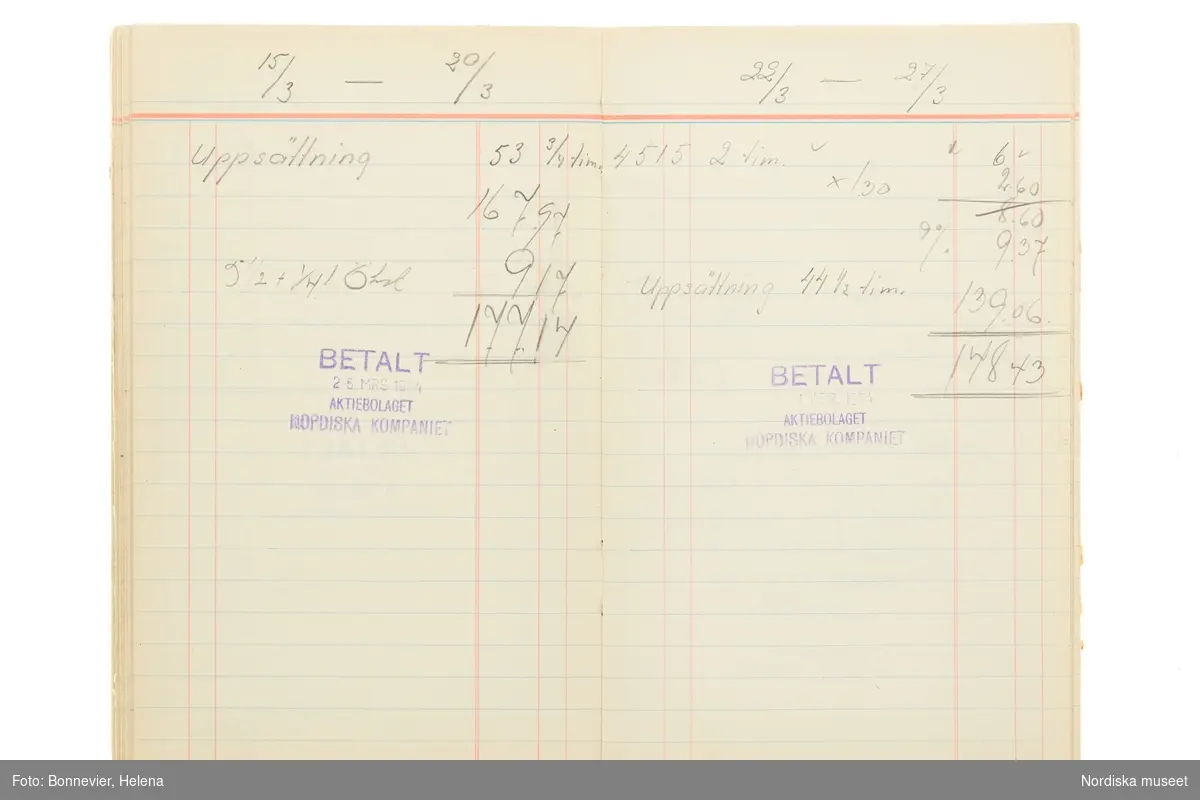 15/3 — 20/3
Uppsättning 53 3/4 tim.
167.97
5 1/2 + 1/4
9.17
177.14
BETALT
25. MRS 1954
AKTIEBOLAGET
NORDISKA KOMPANIET
22/3 — 27/3
4515 2 tim. 6
x 1.30 2.60
8.60
9%. 9.37
Uppsättning 44 1/2 tim. 139.06.
148.43
BETALT
AKTIEBOLAGET
NORDISKA KOMPANIET
Foto: Bonnevier, Helena
Nordiska museet